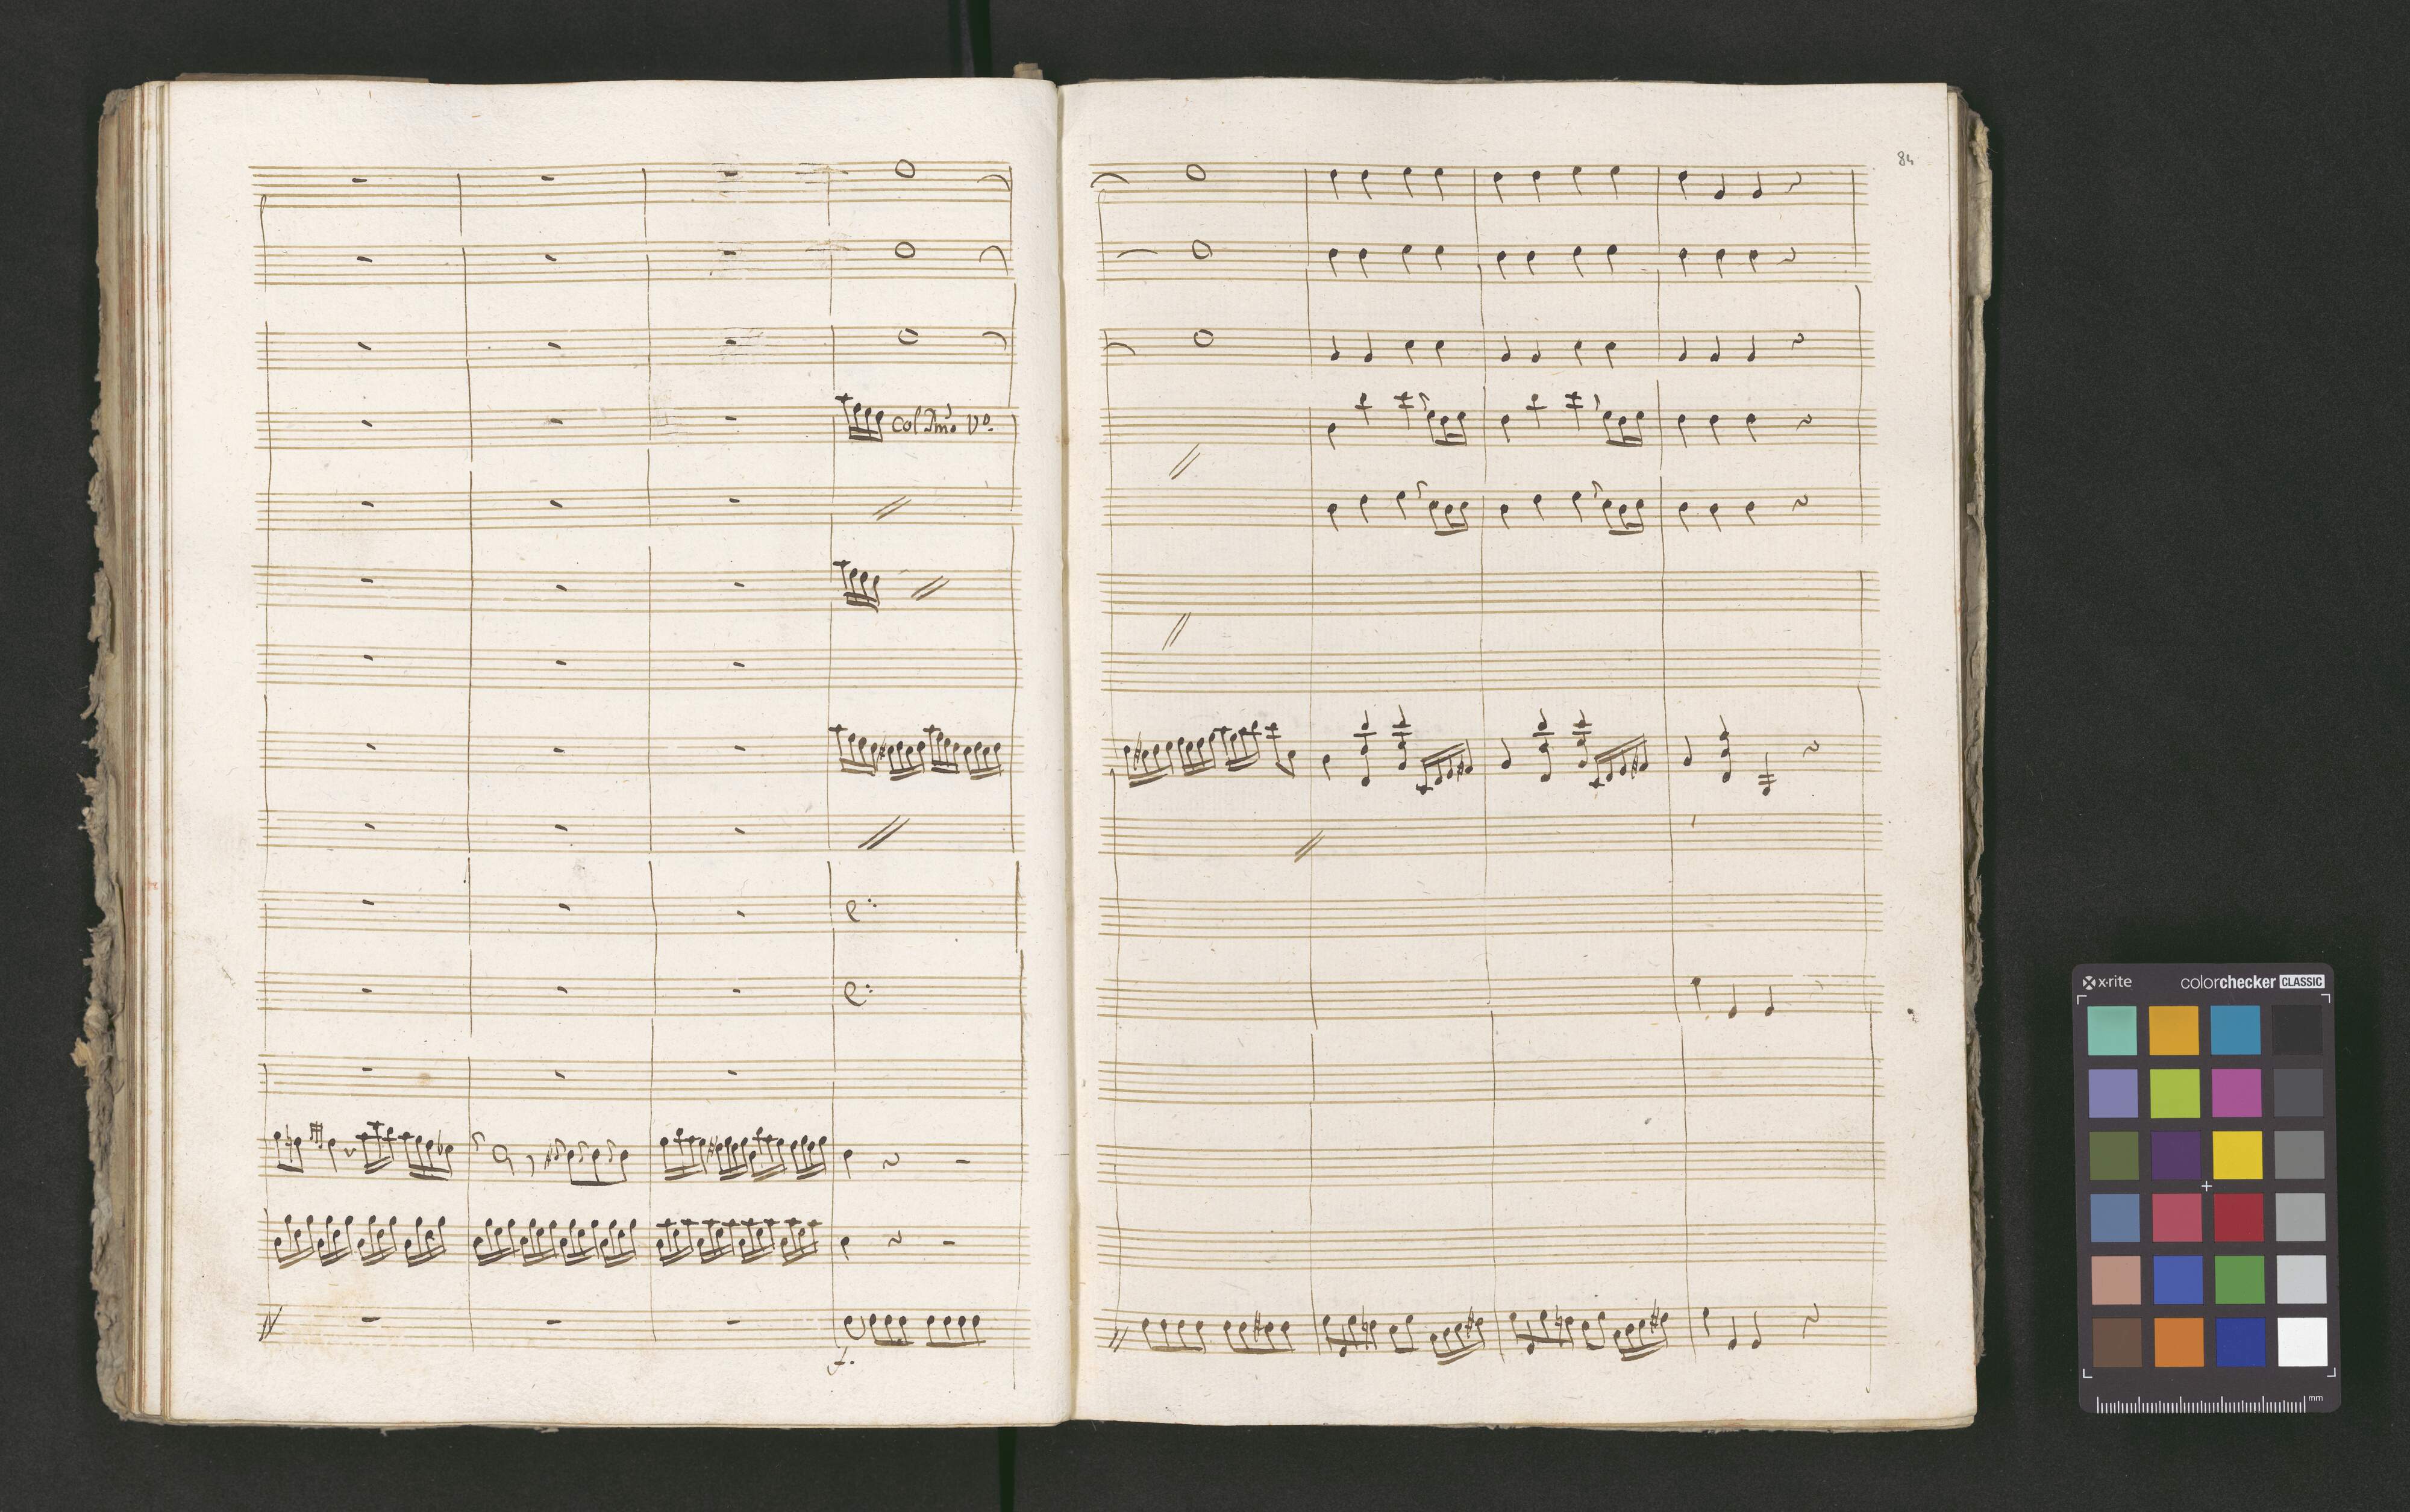 84
col Pmo Vo.
f.
x-rite
colorchecker CLASSIC
mm